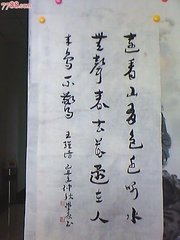 7788.com
遠看山有色近听水
無聲春去花還在人
来鳥不驚 王維詩